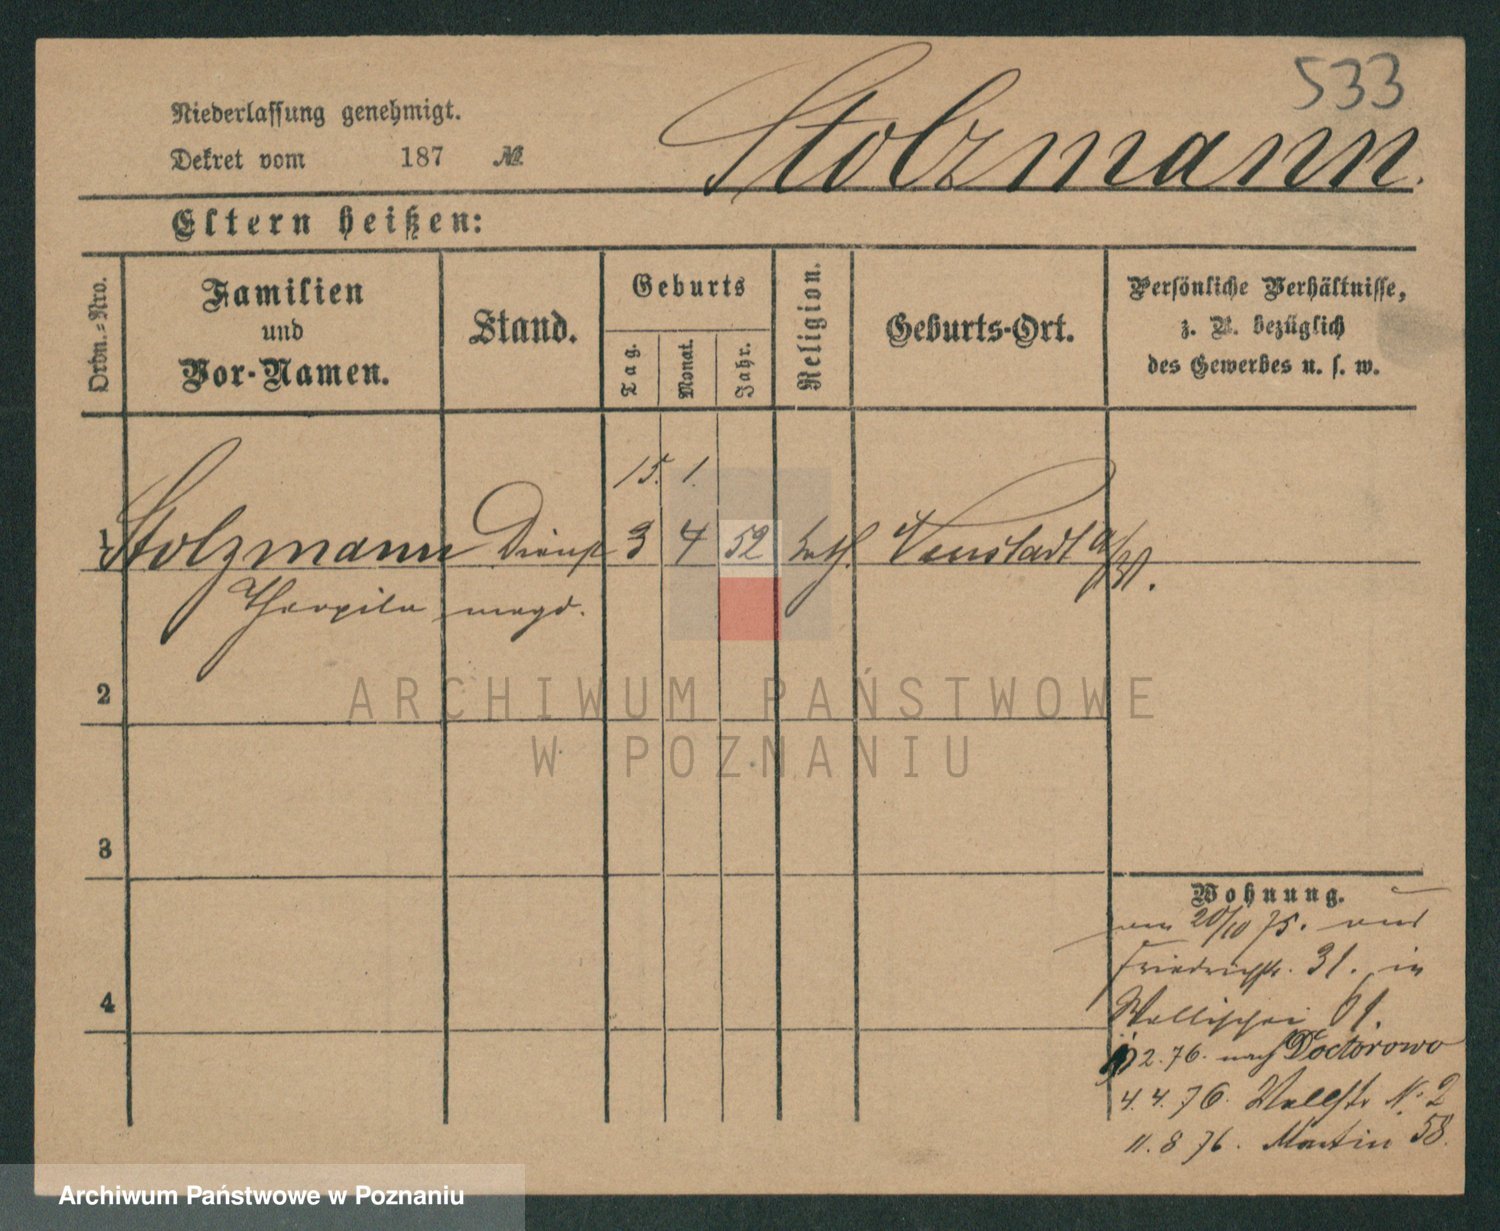 533
Niederlassung genehmigt.
Dekret vom 187 №
Stolzmann.
Eltern heißen:
Ordn.-Nro.
Familien
und
Vor-Namen.
Stand.
Geburts
Tag.
Monat.
Jahr.
Religion.
Geburts-Ort.
Persönliche Verhältnisse,
z. B. bezüglich
des Gewerbes u. s. w.
15. 1.
1 Stolzmann Dienst 3 4 52 kath. Neustadt a/W.
Theophila magd.
2
3
4
Wohnung.
20/10 75. aus
Friedrichstr. 31. in
Wallischei 61.
2.76. nach Doctorowo
4.4.76. Wallstr N: 2
11.8 76. Martin 58.
ARCHIWUM PAŃSTWOWE
W POZNANIU
Archiwum Państwowe w Poznaniu